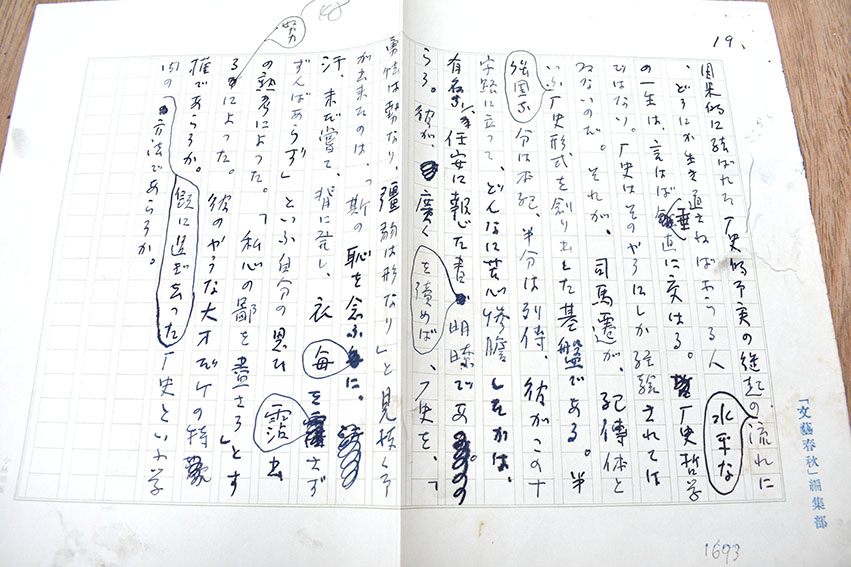 19.
因果的に結ばれた厂史的事実の継起の水平な流れに
、どうにか生き通さねばならる人
の一生は、言はば垂直に交はる。厂史哲学
ではない。厂史はそのやうにしか経験されては
ゐないのだ。それが、司馬遷が、紀傳体と
いふ厂史形式を創り出した基盤である。半
分は本紀、半分は列傳、彼がこの十
字路に立つて、どんなに苦心惨膽したかは、
有名な、任安に報じた書を讀めば明瞭であ
らう。彼が、廣く厂史を、「
勇怯は勢なり、彊弱は形なり」と見抜く事
が出来たのは、「斯の恥を念ふ毎に、
汗、未だ嘗て、背に発し、衣を霑さず
ずんばあらず」といふ自分の思ひ出
の熟考によつた。「私心の鄙を盡さう」とす
る努によつた。彼のやうな大才だけの特
権であらうか。假に過ぎ去つた厂史といふ学
問の方法であらうか。
「文藝春秋」編集部
1693